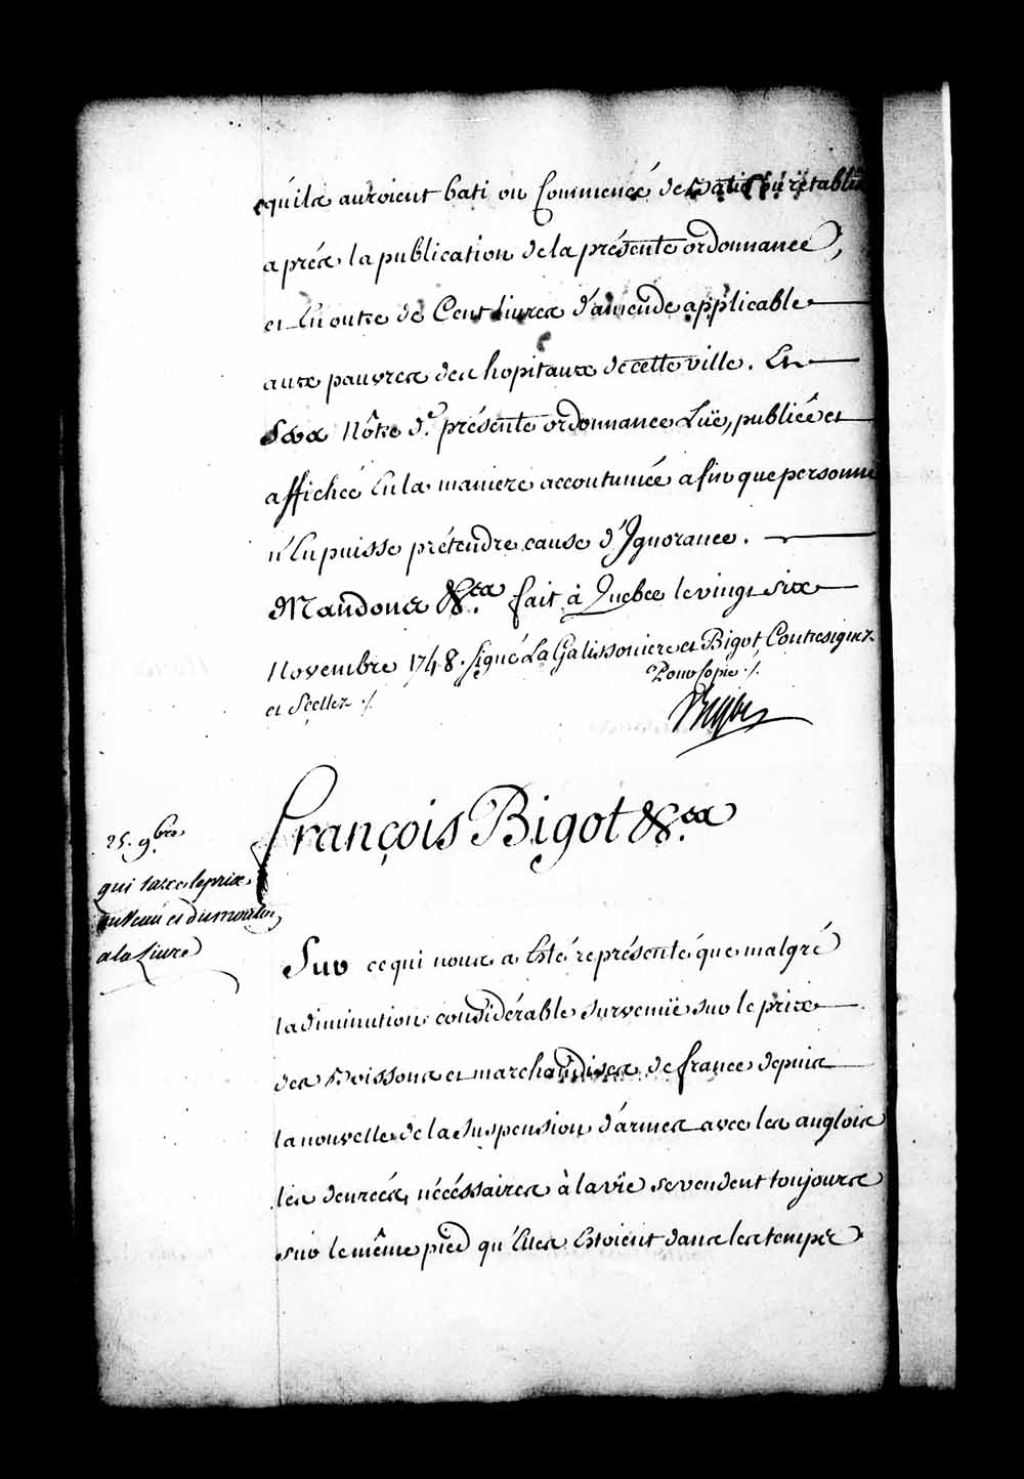 qu'ils auroient bati ou Commencé de Batir ou rétablir
après la publication de la présente ordonnance,
et En outre de Cent Livres d'amende applicable
aux pauvres des hopitaux de cette ville. En
Sera Nôtre d.e présente ordonnance Lüe, publiée et
affichée En la maniere accoutumée afin que personne
n'En puisse prétendre cause d'Ignorance.
Mandons &.ca fait à Quebec le vingt six
Novembre 1748. signé La Galissoniere et Bigot, Contresignez
et Scellez ./.
Pour Copie ./.
François Bigot &.ca
25. 9.bre
qui taxe le prix
du Veau et du mouton
a la Livre
Sur ce qui nous a Esté représenté que malgré
la diminution considérable survenüe sur le prix
des Boissons et marchandises de france depuis
la nouvelle de la suspension d'armes avec les anglois
les denrées, nécéssaires à la vie se vendent toujours
sur le même pied qu'Elles Estoient dans les temps